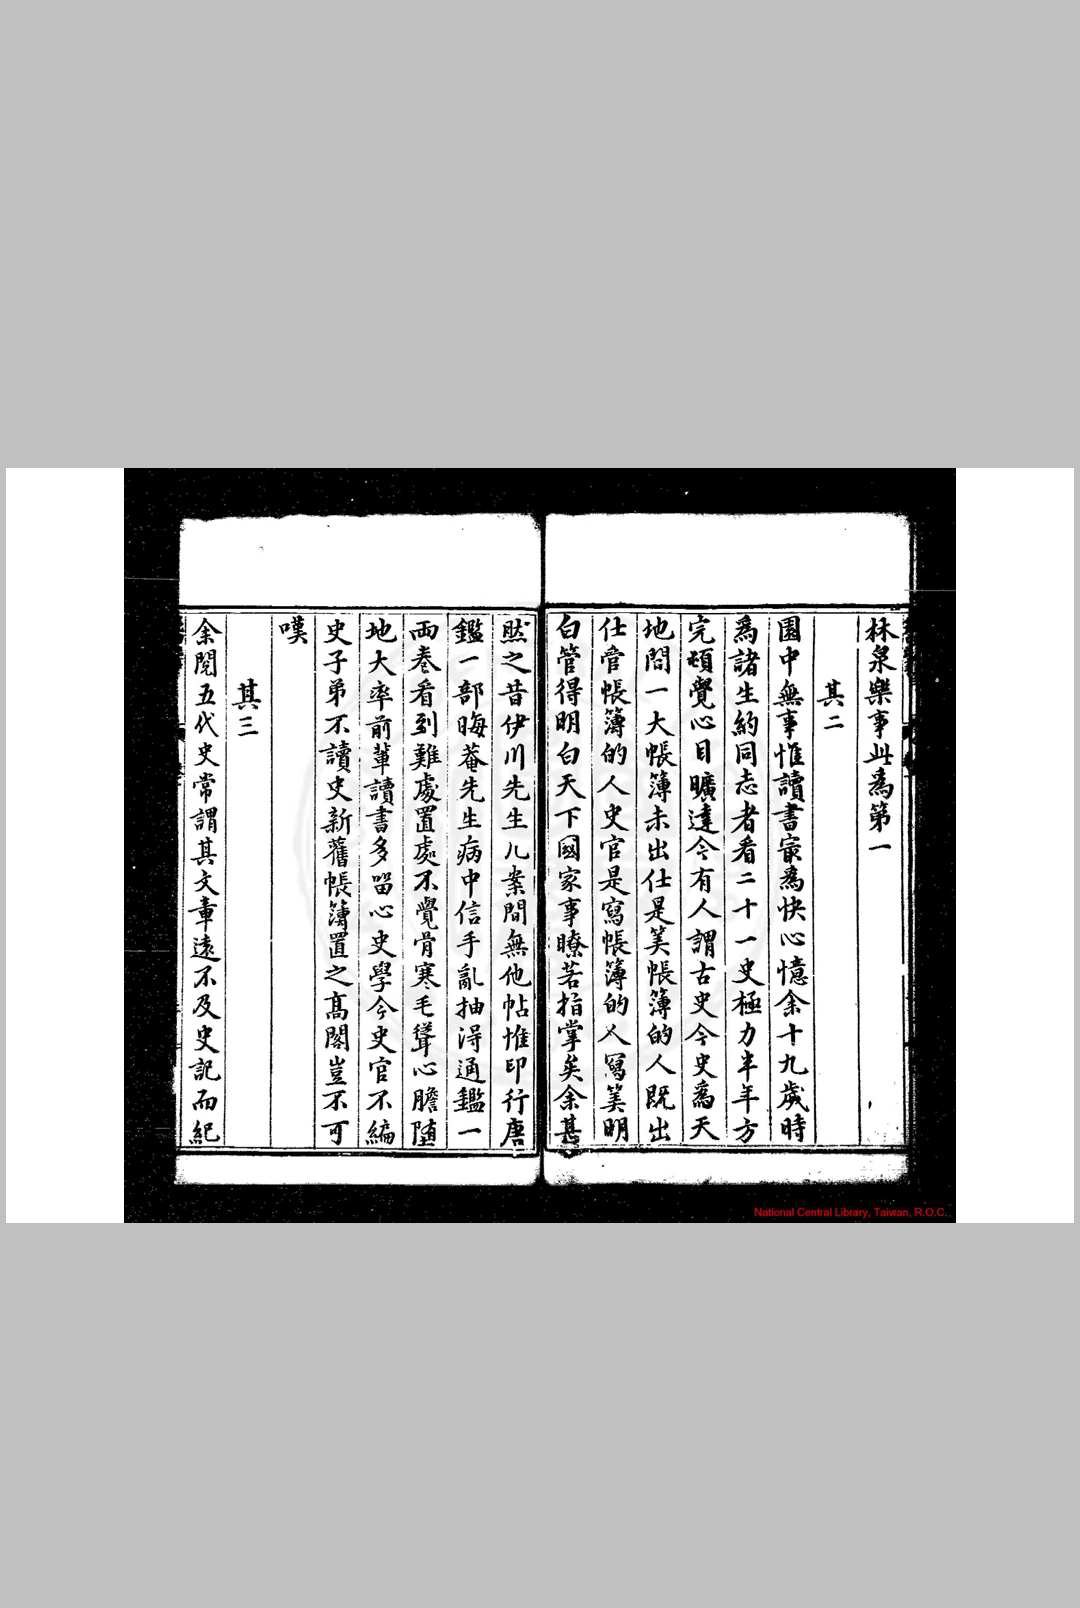 林泉樂事此為第一
其二
園中無事惟讀書㝡為快心憶余十九歲時
為諸生約同志者看二十一史極力半年方
完頓覺心目曠達今有人謂古史今史為天
地間一大帳簿未出仕是筭帳簿的人既出
仕管帳簿的人史官是寫帳簿的人寫筭明
白管得明白天下國家事瞭若指掌矣余甚
然之昔伊川先生几案間無他帖惟印行唐
鑑一部晦菴先生病中信手亂抽得通鑑一
兩卷看到難處置處不覺骨寒毛聳心膽墮
地大率前輩讀書多留心史學今史官不編
史子弟不讀史新舊帳簿置之髙閣豈不可
嘆
其三
余閱五代史常謂其文章遠不及史記而紀
National Central Library, Taiwan, R.O.C.